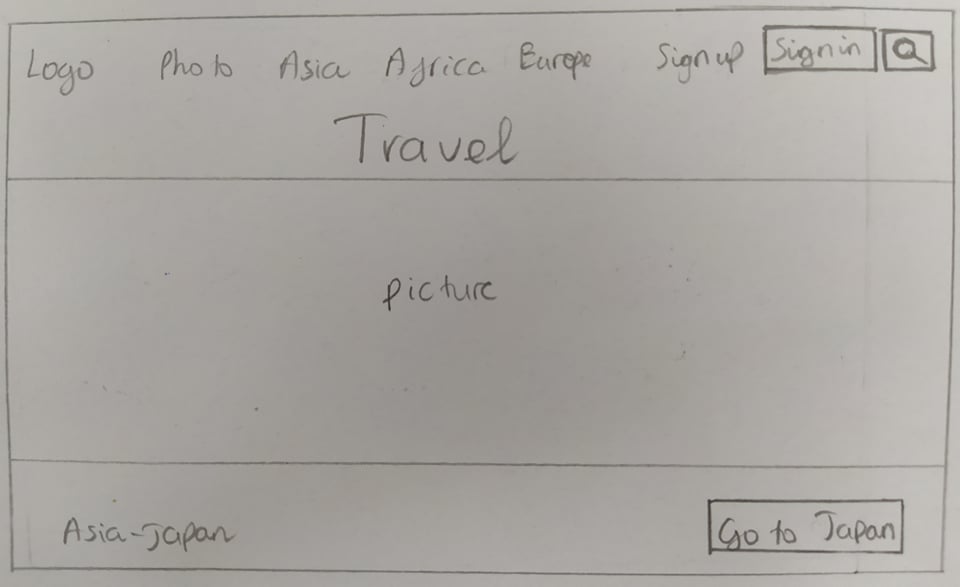 Logo Photo Asia Africa Europe Sign up Sign in
Travel
picture
Asia-Japan Go to Japan